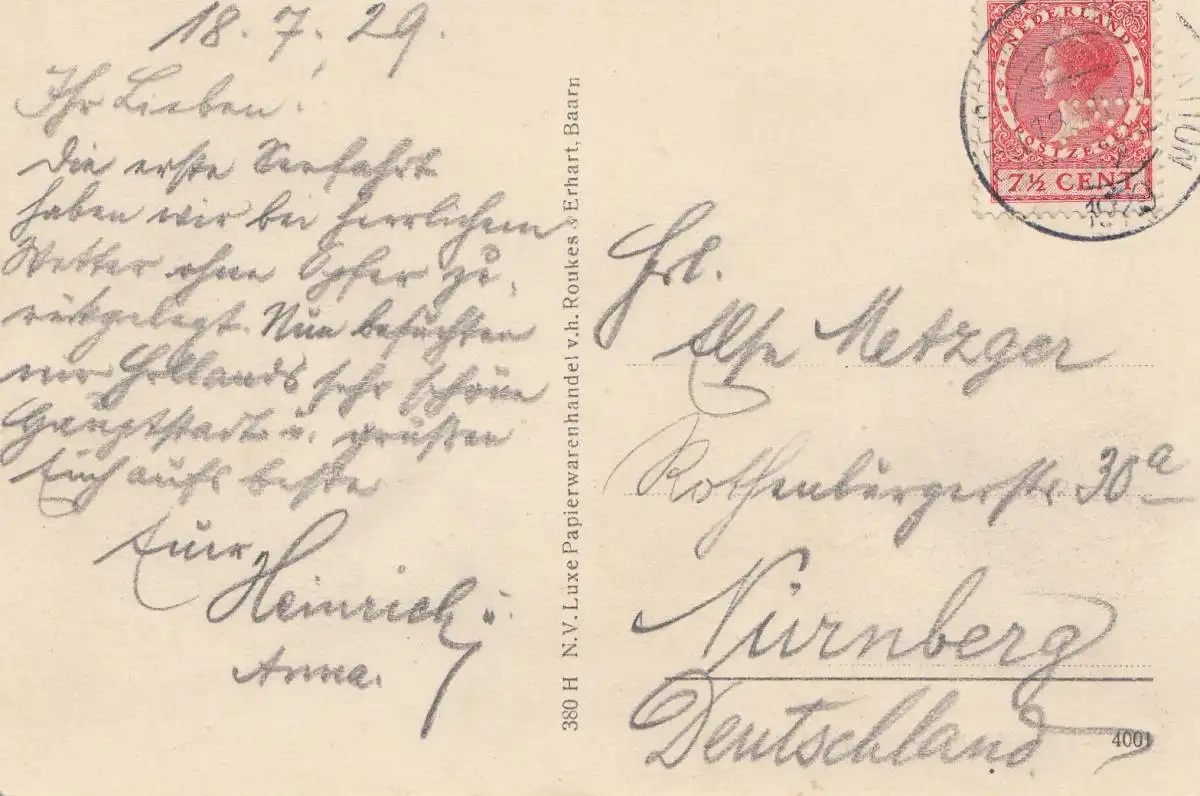 18. 7. 29.
Ihr Lieben!
Die erste Seefahrt
haben wir bei herrlichem
Wetter ohne Opfer zu-
rückgelegt. Nun besuchten
wir Hollands sehr schöne
Hauptstadt u. grüßen
Euch aufs beste
Eure
Heinrich u.
Anna.
380 H N.V. Luxe Papierwarenhandel v.h. Roukes & Erhart, Baarn
NEDERLAND
POSTZEGEL
7½ CENT
Frl.
Ilse Metzger
Rothenburgerstr. 30a
Nürnberg
Deutschland
4001